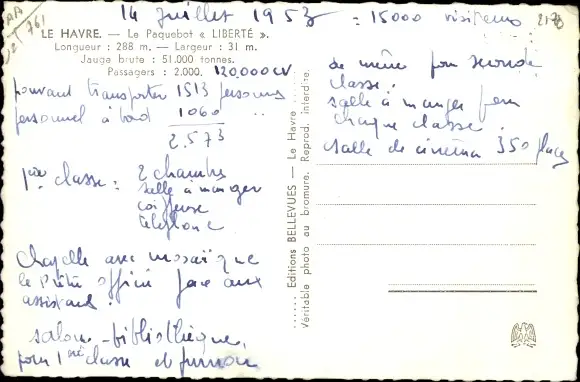 14 Juillet 1953 = 15000 visiteurs
LE HAVRE. — Le Paquebot « LIBERTÉ ».
Longueur : 288 m. — Largeur : 31 m.
Jauge brute : 51.000 tonnes.
Passagers : 2.000. 120,000 CV
pouvant transporter 1513 personnes
personnel à bord 1060
2.573
1ère classe = 2 chambres
salle à manger
coiffeuse
telephone
Chapelle avec mosaïque
le Prêtre officie face aux
assistants.
salon - bibliothèque,
pour 1ère classe et fumoir
de même pour seconde
classe.
salle à manger pour
chaque classe.
salle de cinéma 350 places
Editions BELLEVUES — Le Havre
Véritable photo au bromure. Reprod. interdire.